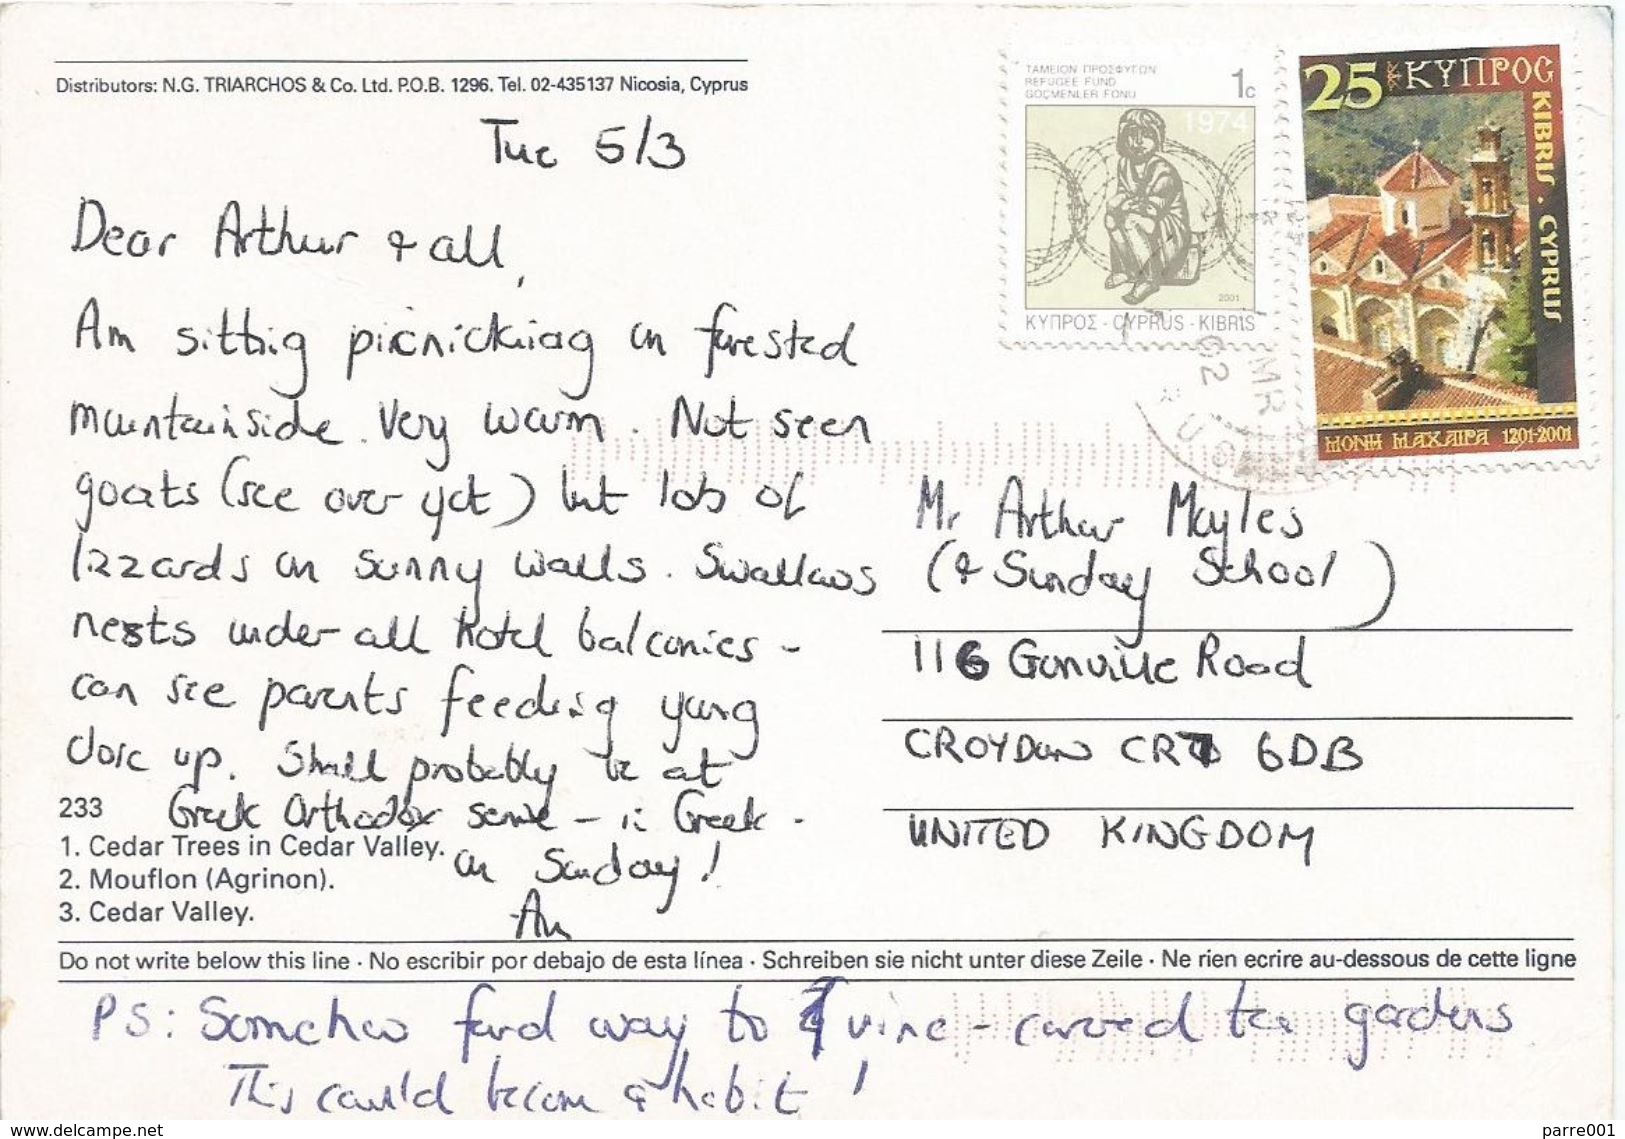 Distributors: N.G. TRIARCHOS & Co. Ltd. P.O.B. 1296. Tel. 02-435137 Nicosia, Cyprus
Tue 5/3
Dear Arthur & all,
Am sitting picnicking on forested
mountainside. Very warm. Not seen
goats (see over yet) but lots of
lizzards on sunny walls. Swallows
nests under all hotel balconies -
can see parents feeding young
close up. Shall probably be at
Greek Orthodox service - in Greek -
on Sunday!
233
1. Cedar Trees in Cedar Valley.
2. Mouflon (Agrinon).
3. Cedar Valley.
ΤΑΜΕΙΟΝ ΠΡΟΣΦΥΓΩΝ
REFUGEE FUND
GÖÇMENLER FONU
1c
1974
2001
ΚΥΠΡΟΣ · CYPRUS · KIBRIS
25 ΚΥΠΡΟC
KIBRIS · CYPRUS
ΜΟΝΗ ΜΑΧΑΙΡΑ 1201-2001
MR 02
Mr Arthur Mayles
(& Sunday School)
116 Gonville Road
CROYDON CR7 6DB
UNITED KINGDOM
Do not write below this line · No escribir por debajo de esta línea · Schreiben sie nicht unter diese Zeile · Ne rien ecrire au-dessous de cette ligne
PS: Somehow found way to 4 vine-covered tea gardens
This could become a habit!
www.delcampe.net
parre001